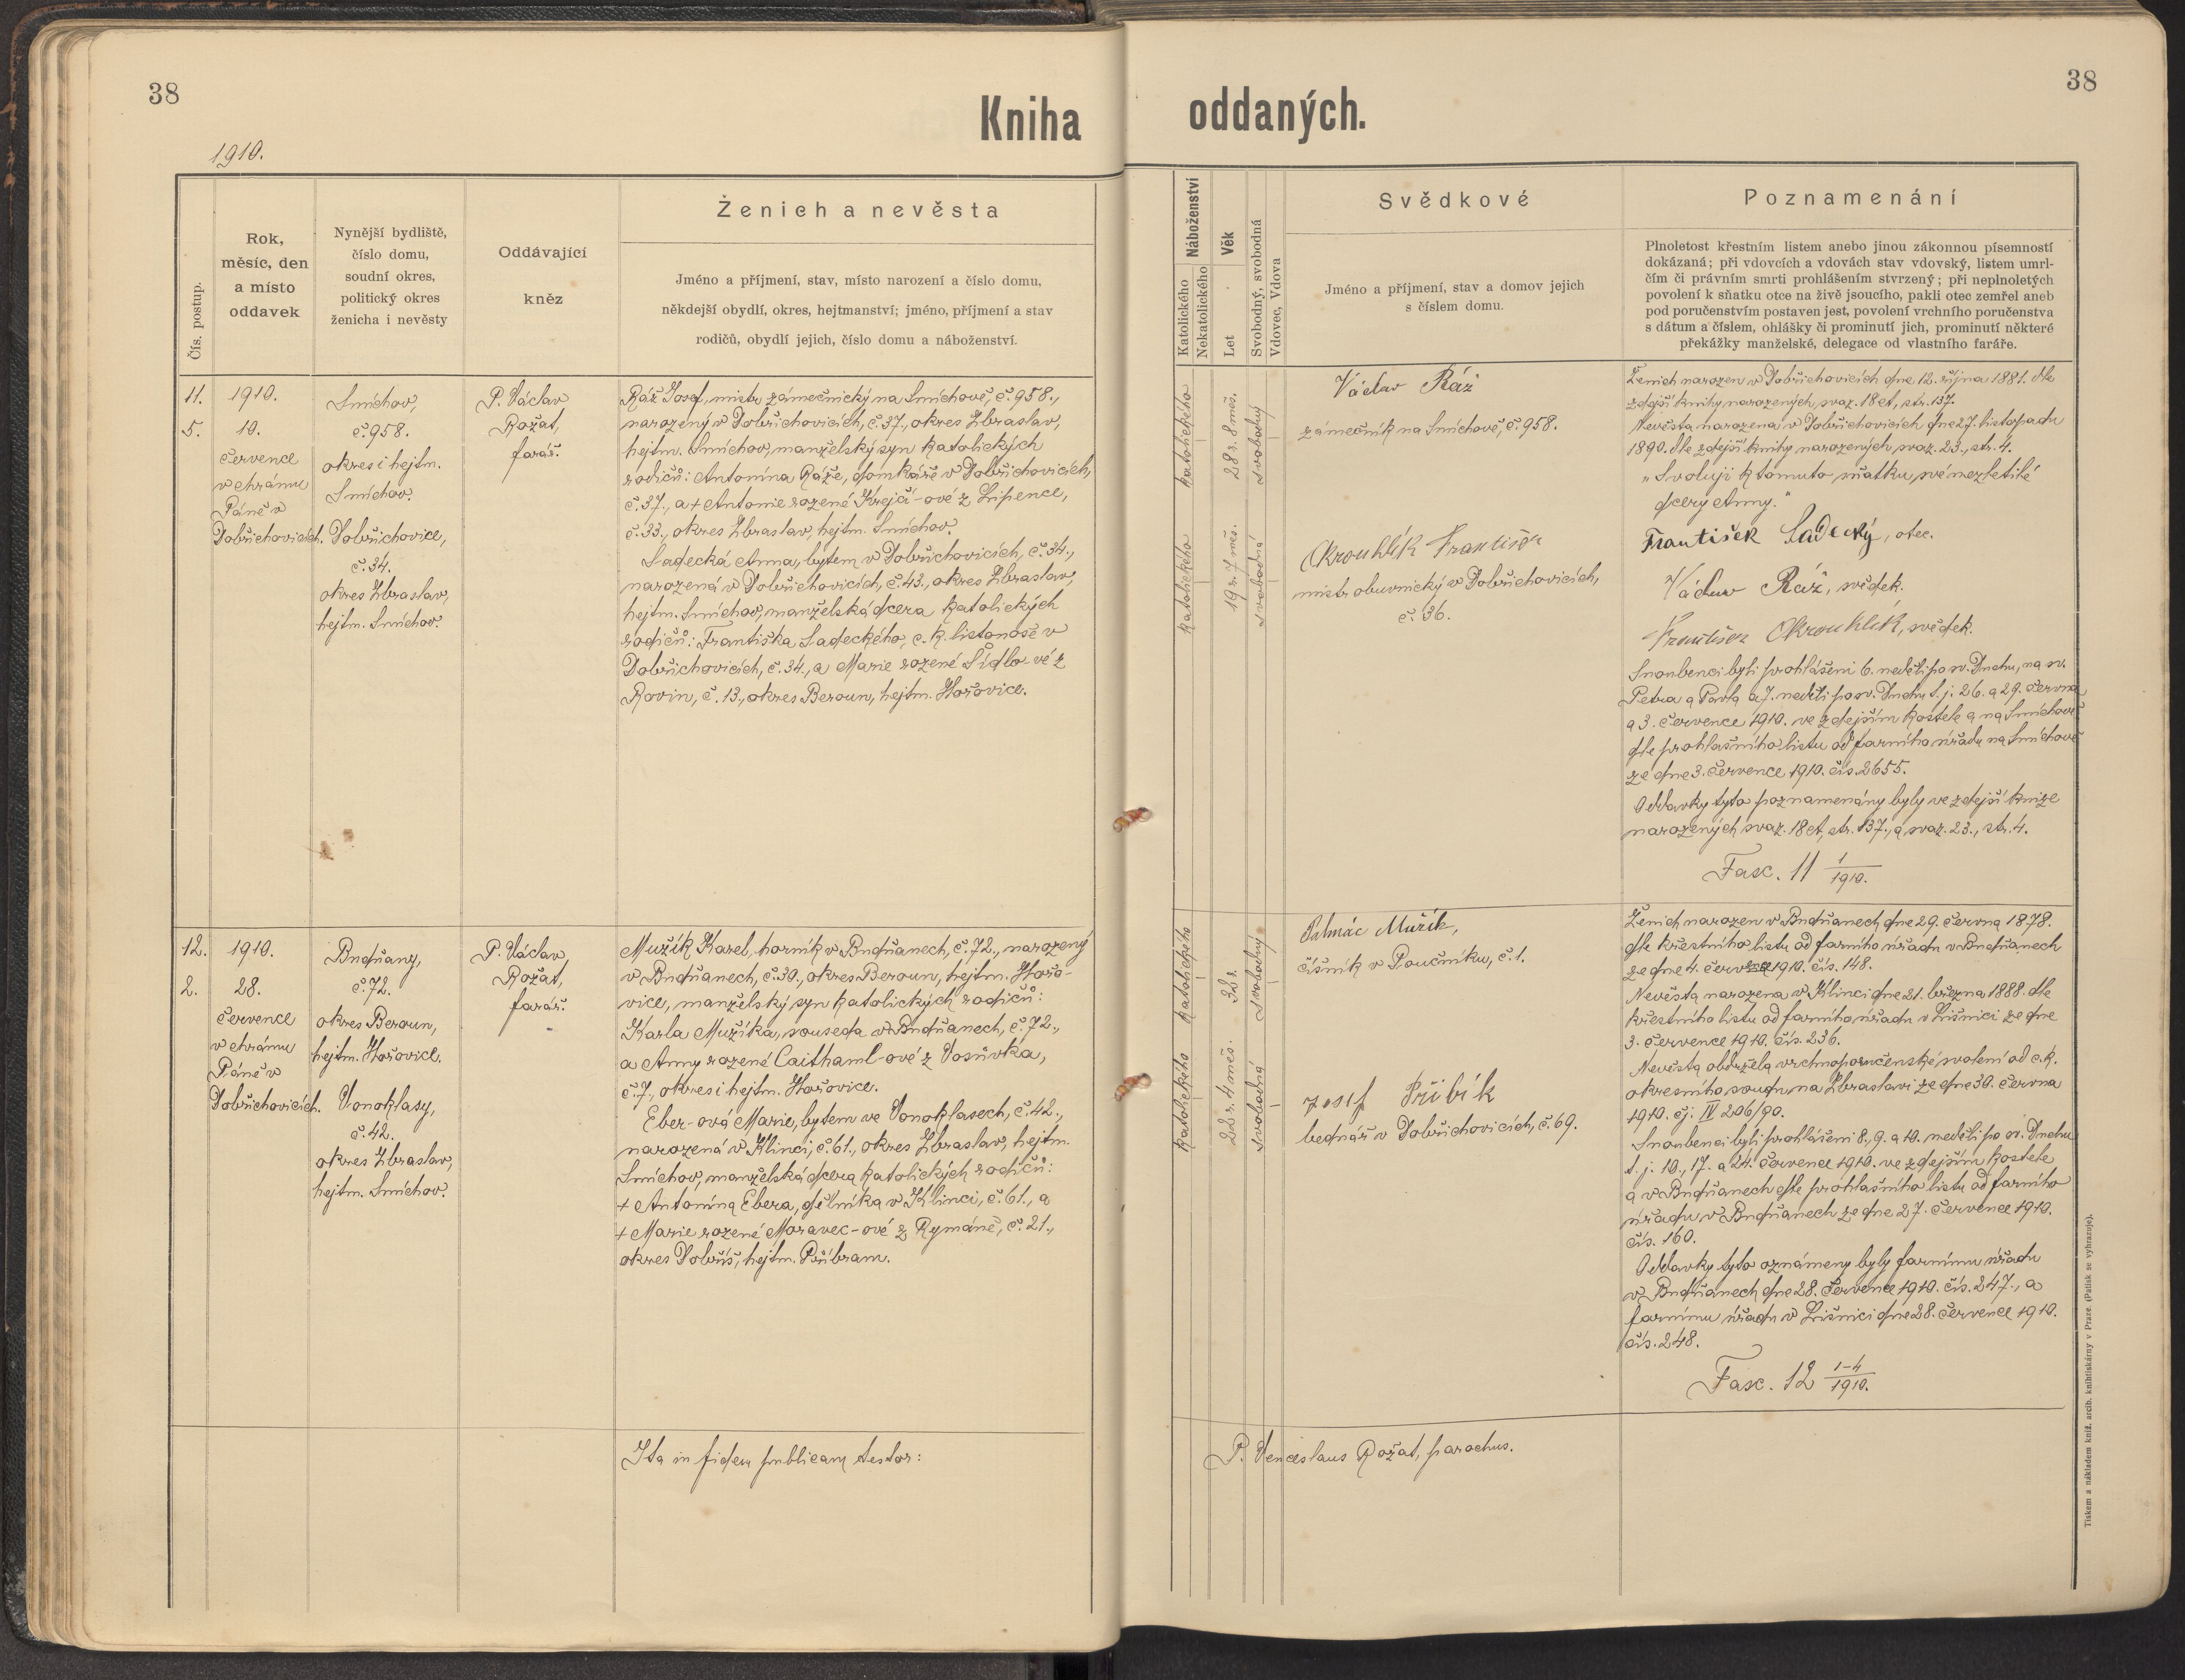 38
38
Kniha oddaných.
1910.
Čís. postup.
Rok,
měsíc, den
a místo
oddavek
Nynější bydliště,
číslo domu,
soudní okres,
politický okres
ženicha i nevěsty
Oddávající
kněz
Ženich a nevěsta
Jméno a příjmení, stav, místo narození a číslo domu,
někdejší obydlí, okres, hejtmanství; jméno, příjmení a stav
rodičů, obydlí jejich, číslo domu a náboženství.
Náboženství
Katolického
Nekatolického
Věk
Let
Svobodný, svobodná
Vdovec, Vdova
Svědkové
Jméno a příjmení, stav a domov jejich
s číslem domu.
Poznamenání
Plnoletost křestním listem anebo jinou zákonnou písemností
dokázaná; při vdovcích a vdovách stav vdovský, listem umrl-
čím či právním smrti prohlášením stvrzený; při neplnoletých
povolení k sňatku otce na živě jsoucího, pakli otec zemřel aneb
pod poručenstvím postaven jest, povolení vrchního poručenstva
s dátum a číslem, ohlášky či prominutí jich, prominutí některé
překážky manželské, delegace od vlastního faráře.
11.
5.
1910.
10.
července
v chrámu
Páně v
Dobřichovicích.
Smíchov,
č. 958.
okres i hejtm.
Smíchov.
Dobřichovice,
č. 34.
okres Zbraslav,
hejtm. Smíchov.
P. Václav
Rožat,
farář.
Ráž Josef, mistr zámečnický na Smíchově, č. 958.,
narozený v Dobřichovicích, č. 37., okres Zbraslav,
hejtm. Smíchov, manželský syn katolických
rodičů: Antonína Ráže, domkáře v Dobřichovicích,
č. 37., a + Antonie rozené Krejčí-ové z Lipence,
č. 33., okres Zbraslav, hejtm. Smíchov.
Sadecká Anna, bytem v Dobřichovicích, č. 34.,
narozená v Dobřichovicích, č. 43., okres Zbraslav,
hejtm. Smíchov, manželská dcera katolických
rodičů: Františka Sadeckého, c. k. listonoše v
Dobřichovicích, č. 34., a Marie rozené Šídlo-vé z
Rovin, č. 13., okres Beroun, hejtm. Hořovice.
katolického
28 r. 8 měs.
svobodný
katolického
19 r. 7 měs.
svobodná
Václav Ráž
zámečník na Smíchově, č. 958.
Okrouhlík František
mistr obuvnický v Dobřichovicích,
č. 36.
Ženich narozen v Dobřichovicích dne 12. října 1881. dle
zdejší knihy narozených, svaz. 18 et, str. 137.
Nevěsta narozena v Dobřichovicích dne 27. listopadu
1890. dle zdejší knihy narozených, svaz. 23., str. 4.
„Svoluji k tomuto sňatku své nezletilé
dcery Anny."
František Sadecký, otec.
Václav Ráž, svědek.
František Okrouhlík, svědek.
Snoubenci byli prohlášeni 6. neděli po sv. Duchu, na sv.
Petra a Pavla a 7. neděli po sv. Duchu t. j. 26. a 29. června
a 3. července 1910. ve zdejším kostele a na Smíchově
dle prohlašního listu od farního úřadu na Smíchově
ze dne 3. července 1910. čís. 2655.
Oddavky tyto poznamenány byly ve zdejší knize
narozených svaz. 18 et, str. 137., a svaz. 23., str. 4.
Fasc. 11 1/1910.
12.
2.
1910.
28.
července
v chrámu
Páně v
Dobřichovicích.
Budňany,
č. 72.
okres Beroun,
hejtm. Hořovice.
Vonoklasy,
č. 42.
okres Zbraslav,
hejtm. Smíchov.
P. Václav
Rožat,
farář.
Mužík Karel, horník v Budňanech, č. 72., narozený
v Budňanech, č. 30., okres Beroun, hejtm. Hořo-
vice, manželský syn katolických rodičů:
Karla Mužíka, souseda v Budňanech, č. 72.,
a Anny rozené Caithaml-ové z Vosůvka,
č. 7., okres i hejtm. Hořovice.
Eber-ová Marie, bytem ve Vonoklasech, č. 42.,
narozená v Klinci, č. 61., okres Zbraslav, hejtm.
Smíchov, manželská dcera katolických rodičů:
+ Antonína Ebera, dělníka v Klinci, č. 61., a
+ Marie rozené Moravec-ové z Rymáně, č. 21.,
okres Dobříš, hejtm. Příbram.
katolického
32 r.
svobodný
katolického
22 r. 4 měs.
svobodná
Mužík,
číšník v Poučníku, č. 1.
Josef Přibík
bednář v Dobřichovicích, č. 69.
Ženich narozen v Budňanech dne 29. června 1878.
dle křestního listu od farního úřadu v Budňanech
ze dne 4. července 1910. čís. 148.
Nevěsta narozena v Klinci dne 21. března 1888. dle
křestního listu od farního úřadu v Líšnici ze dne
3. července 1910. čís. 236.
Nevěsta obdržela vrchnoporučenské svolení od c. k.
okresního soudu na Zbraslavi ze dne 30. června
1910. čj: IV 206/90.
Snoubenci byli prohlášeni 8., 9. a 10. neděli po sv. Duchu
t. j. 10., 17. a 24. července 1910. ve zdejším kostele
a v Budňanech dle prohlašního listu od farního
úřadu v Budňanech ze dne 27. července 1910.
čís. 160.
Oddavky tyto oznámeny byly farnímu úřadu
v Budňanech dne 28. července 1910. čís. 247., a
farnímu úřadu v Líšnici dne 28. července 1910.
čís. 248.
Fasc. 12 1-4/1910.
Ita in fidem publicam testor:
P. Venceslaus Rožat, parochus.
Tiskem a nákladem kníž. arcib. knihtiskárny v Praze. (Patisk se vyhrazuje).